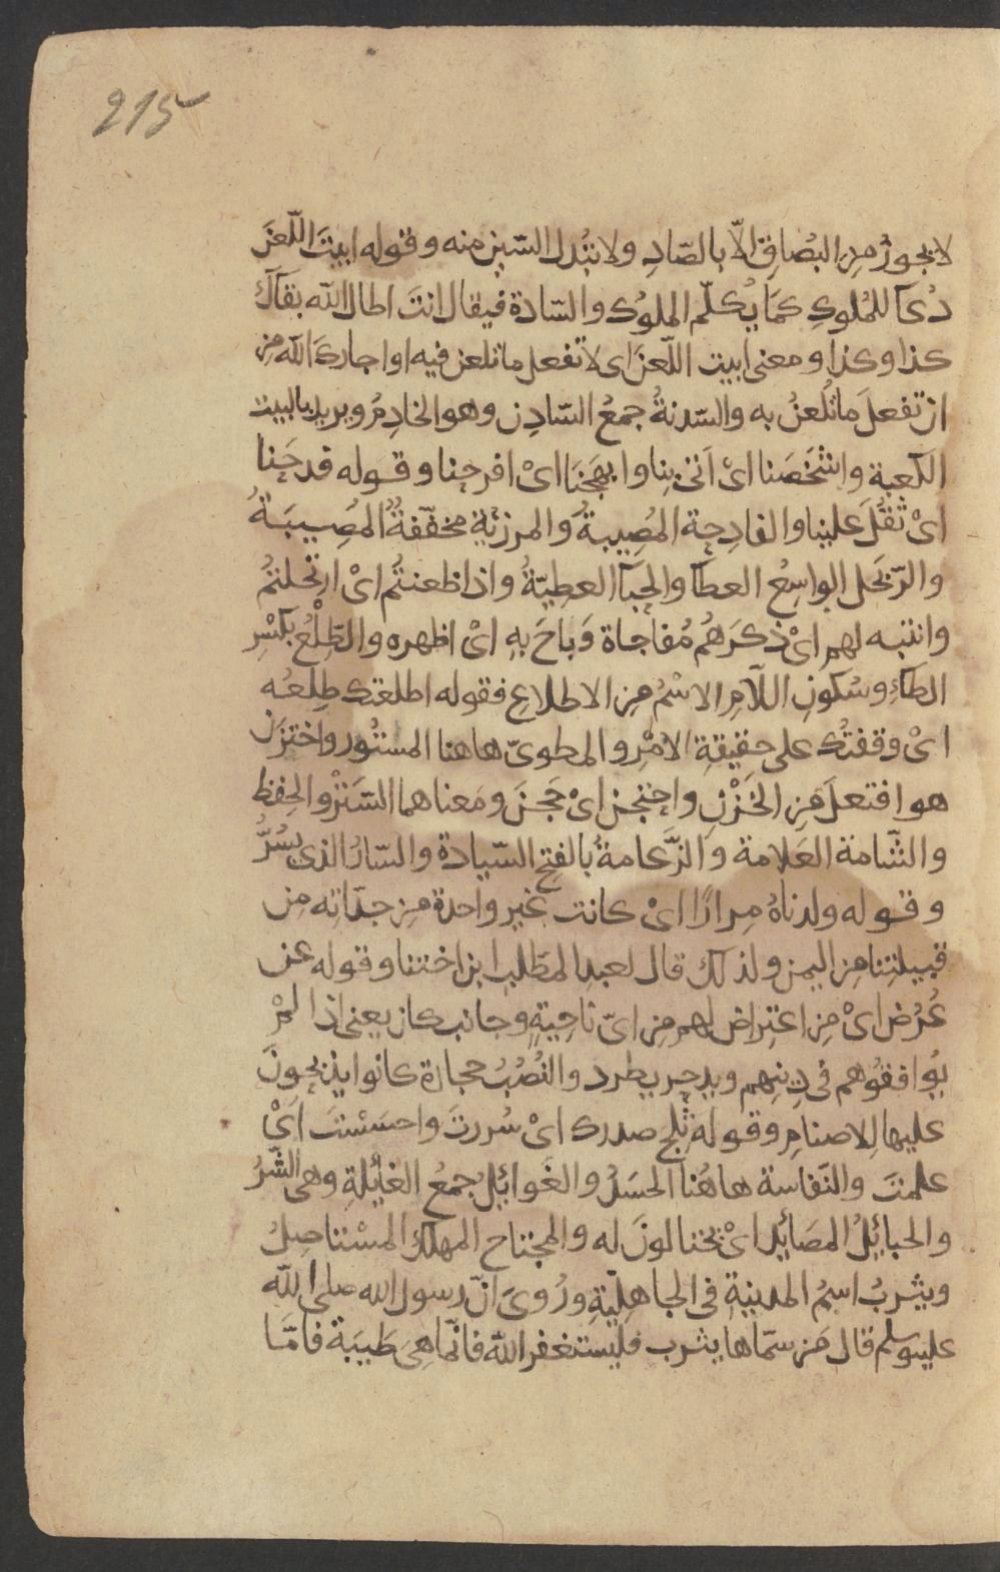 215
لا يجوز من البُصاقِ الّا بالصّادِ ولا تبُدل السّين منه وقوله ابيتَ اللّعنَ
دُعآ للمُلوكِ كمَا يُكلّم الملوُك والسّادة فيقال انتَ اطال الله بقآكَ
كذا وكذا ومعنى ابيت اللّعنَ اى لا تفعل ما تلعن فيه او اجاركَ الله من
ان تفعلَ ما تُلعنُ به والسّدنةُ جمعُ السّادِن وهو الخادِمُ ويريد بالبيت
الكعبة واشخَصَنا اىْ اَتى بِنا وابهَجَنَا اىْ افرحنا وقوله فدحَنا
اىْ ثَقُلَ علينا والفادِحة المُصِيبةُ والمرزئة مخفّفةٌ المصِيبَةُ
والرّبَحل الواسِعُ العطآ والحِبآ العطيّةُ واذا ظعنتُم اىْ ارتحلتمُ
وانتبه لهم اىْ ذكرَهُم مُفاجاة وَباحَ بهِ اىْ اظهره والطِّلْعُ بكسْرِ
الطآءِ وسُكونِ اللّامِ الاسْمُ من الاطلاعِ فقوله اطلعتك طِلعُه
اىْ وقفتُك على حقيقةِ الامْرِ والمطوىّ هاهنا المستُور واختزَن
هو افتعلَ مَن الخَزْنِ واحتجن اىْ حَجَنَ ومَعناهما السّتْرُ والحِفظ
والشّامة العَلامة والزّعامةُ بالفتح السّيادة والسّارُ الذى يسُرُّ
وقوله ولدناهُ مِرارًا اىْ كانت غير واحدة من جدّاته من
قبيلتِنا من اليمن ولذلك قال لعبد المطّلب ابن اختنا وقوله عن
عُرُض اىْ من اعتِراض لهم من اىّ ناحِيةٍ وجانب كان يعنى اذا لمْ
يُوافقُوهم فى دِينهم ويدحر يطرد والنُصُبُ حجارة كانوا يذبحونَ
عليها للاصنامِ وقوله ثلج صدرك اىْ سُررتَ واحسَسْتَ اَىْ
علمتَ والنّفاسة هاهُنا الحسَدُ والغَوائِيلُ جمعُ الغيْلةِ وهى الشّرُّ
والحبائِيلُ المصَائِيد اىْ يحتالونَ له والمجتاح المهلكُ المسْتاصِلُ
ويثربُ اسمُ المدينةِ فى الجاهِليّةِ ورُوىَ انّ رسول الله صلى الله
عليه وسلم قال مَن سمّاها يثرب فليستغفر اللّه فانّما هِىَ طَيبَة فامّا